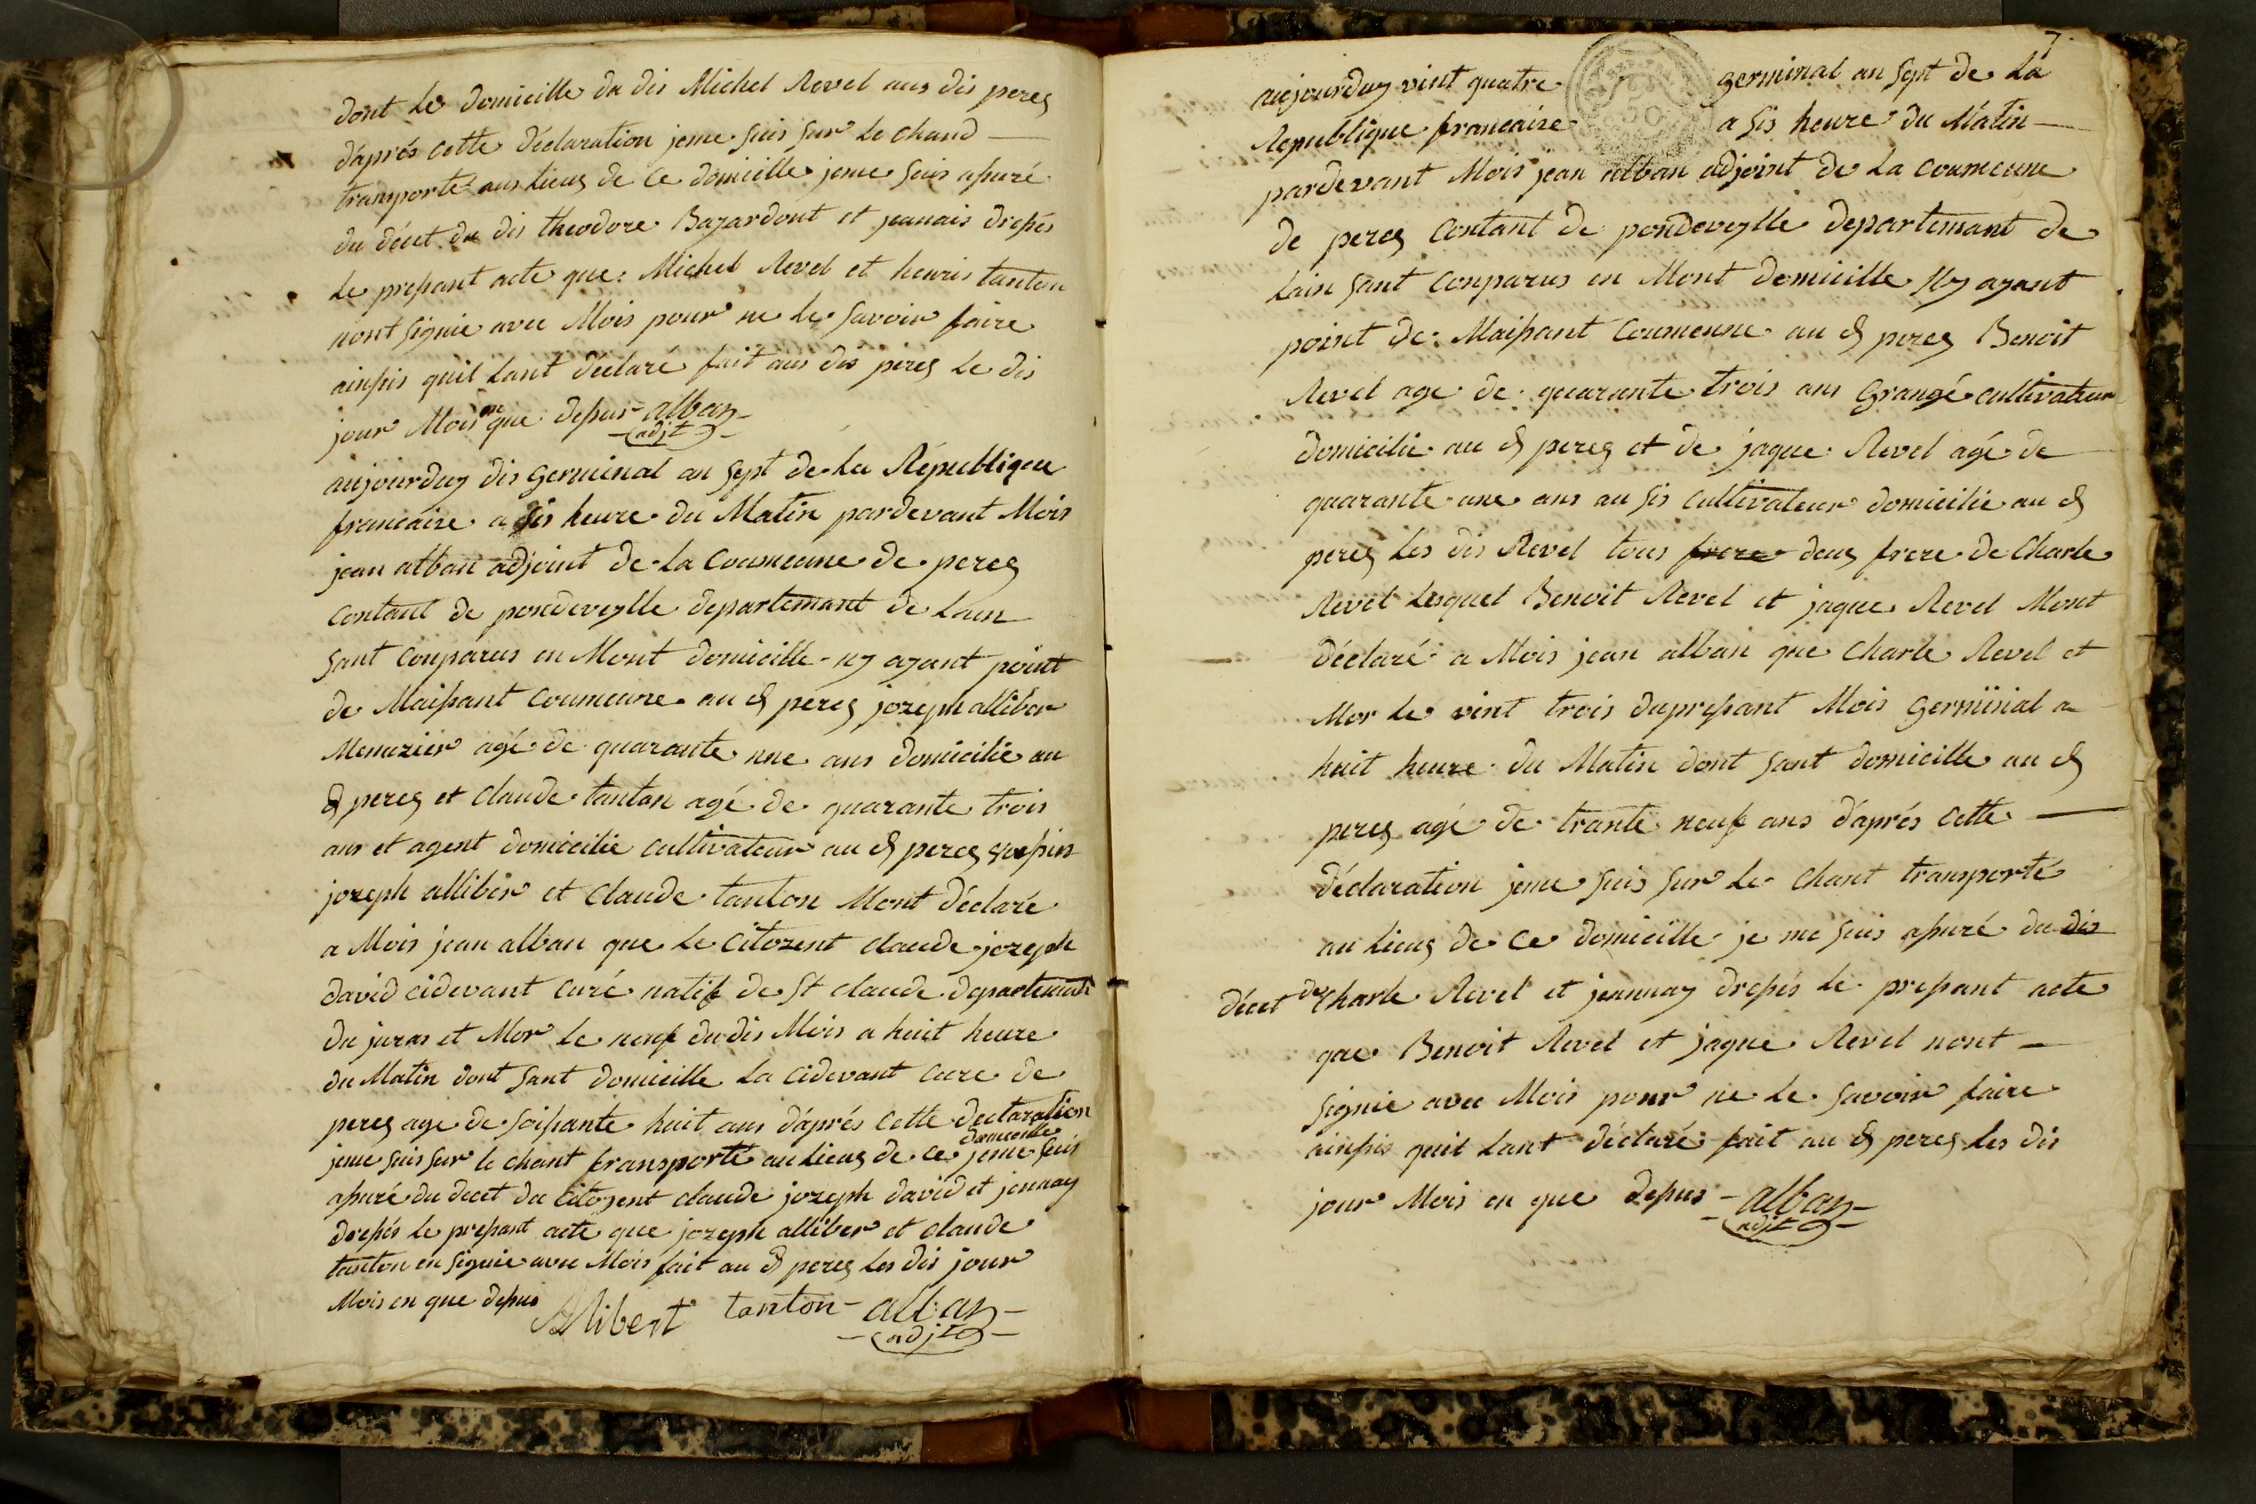 dont le domicille du dis Michel Revel aus dis pereg
d'aprés cette déclaration jeme suis sur le chand
transporte aus lieus de ce domicille jeme suis assuré
du décet du dis theodore Bazardout et jeanais dressés
le pressant acte que Michel Revel et henris tanton
nont signie avec Mois pour ne le savoir faire
ainssis quil lant déclaré fait aus dis pereg le dis
jour Mois en que dessus alban
adjt
aujourduy dis germinal an sept de la République
francaire a sis heure du Matin pardevant Mois
jean alban adjoint de la coumeune de pereg
contant de pondeveylle departemant de lain
sant conparus en Mont domicille ny ayant point
de Maissant coumeune au d pereg jozeph alliber
Menuzier agé de quarante une ans domicilie au
d pereg et claude tanton agé de quarante trois
ans et agent domicilie cultivateur au d pereg
jozeph alliber et claude tanton Mont déclaré
a Mois jean alban que le citozent claude jozeph
david cidevant curé natif de st claude departemant
du juras et Mor le neuf du dis Mois a huit heure
du Matin dont sant domicille la cidevant cure de
pereg age de soissante huit ans d'aprés cette declaration
jeme suis sur le chant transporté au lieus de ce domicille jeme suis
assuré du decet du citozent claude jozeph david et jennay
dressés le pressant acte que jozeph alliber et claude
tanton en signie avec Mois fait au d pereg les dis jour
Mois en que dessus Allibert tanton alban
adjt
7.
aujourduy vint quatre germinal an sept de la
Republique francaire a sis heure du Matin
pardevant Mois jean alban adjoint de la coumeune
de pereg contant de pondeveylle departemant de
lain sant conparus en Mont domicille ny ayant
point de Maissant coumeune au d pereg Benoit
Revel age de quarante trois ans Grangé cultivateur
domicilie au d pereg et de jaque Revel agé de
quarante une ans au sis cultivateur domicilie au d
pereg les dis Revel tous frere deus frere de Charle
Revel lesquel Benoit Revel et jaque Revel Mont
déclaré a Mois jean alban que Charle Revel et
Mor le vint trois du pressant Mois germinial a
huit heure du Matin dont sant domicille au d
pereg agé de trante neuf ans d'aprés cette
déclaration jeme suis sur le chant transporté
au lieus de ce domicille je me suis assuré du dis
décet de Charle Revel et jeannay dressés le pressant acte
que Benoit Revel et jaque Revel nont
signie avec Mois pour ne le savoir faire
ainssis quil lant déclaré fait au d pereg les dis
jour Mois en que dessus alban
adjt